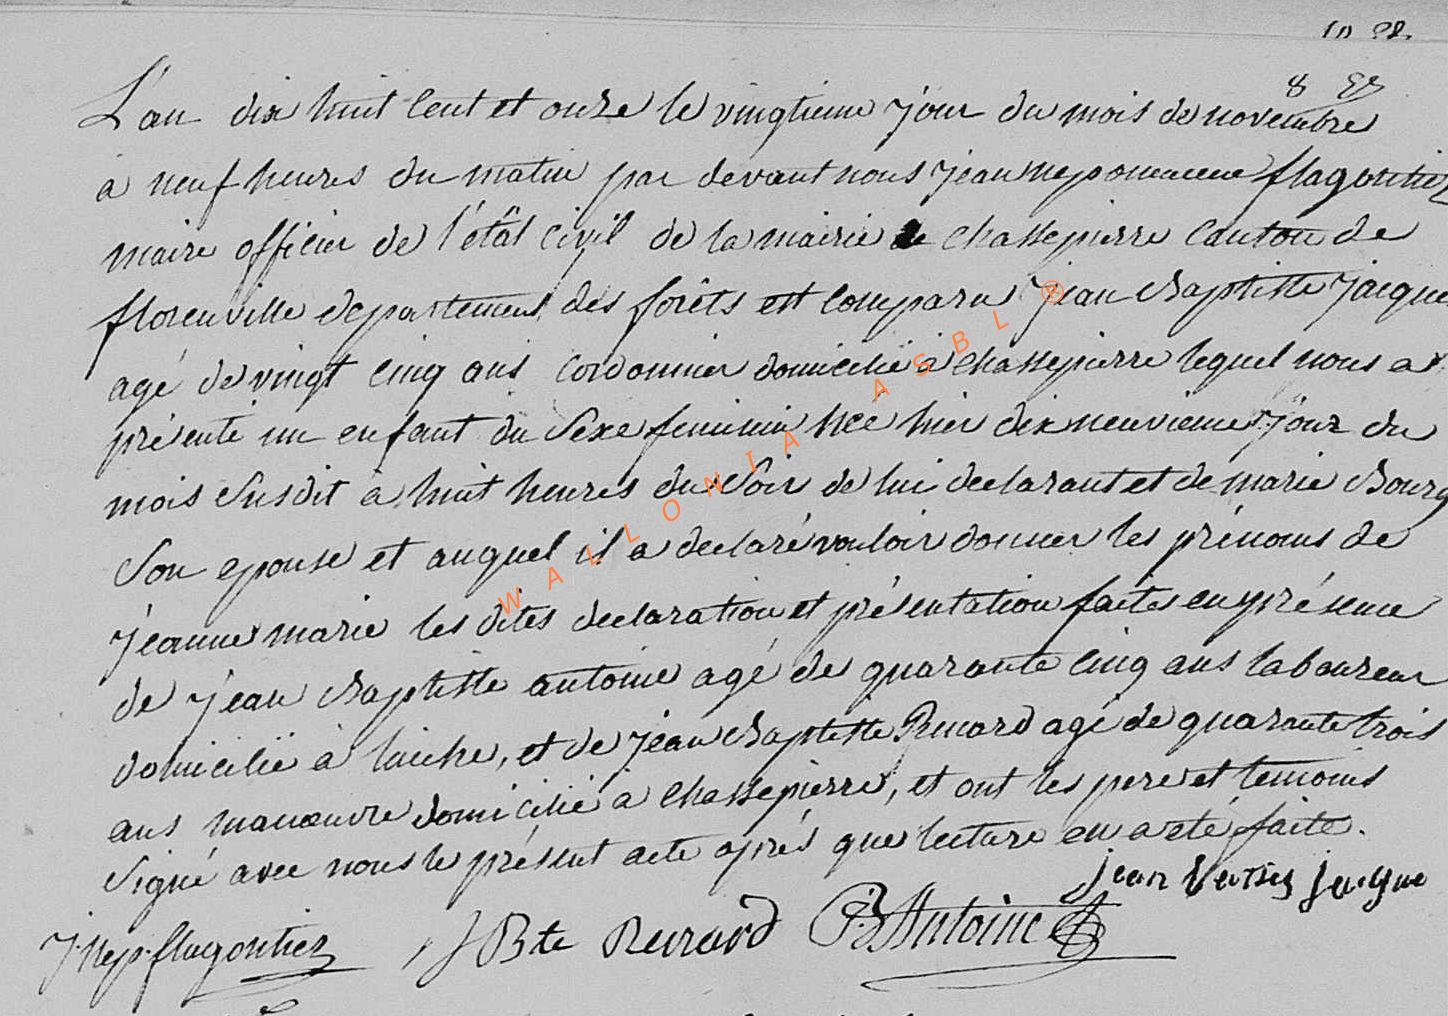 L'an dix huit cent et onze le vingtieme jour du mois de novembre
à neuf heures du matin par devant nous jean nepomucene flagontier
maire officier de l'étât civil de la mairie de chassepierre canton de
florenville departement des forêts est comparu jean Baptiste jacque
agé de vingt cinq ans cordonnier domicilié à chassepierre lequel nous a
présenté un enfant du sexe feminin née hier dix neuvieme jour du
mois susdit à huit heures du soir de lui declarant et de marie Bourg
son epouse et auquel il a declaré vouloir donner les prénoms de
jeanne marie les dites declaration et présentation faites en présence
de jean Baptiste antoine agé de quarante cinq ans laboureur
domicilié à laiche, et de jean Baptiste Renard agé de quarante trois
ans manœuvre domicilié à chassepierre, et ont les pere et temoins
signé avec nous le présent acte après que lecture en a eté faite.
jean jacque
J. nep. flagontier J Bte Renard Antoine
WALLONIA ASBL ®